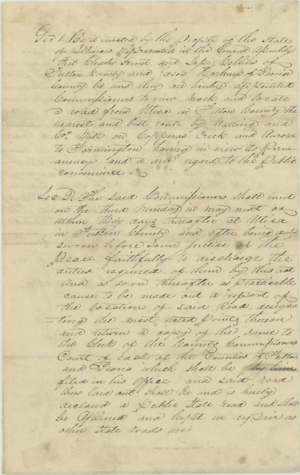 Sec 1 Be it enacted by the People of the State
of Illinois Represented in the General Assembly
That Charles and Sipy Collins of
Fulton County and of Peoria
County be and they are hereby appointed
Commissioners to view mark and locate
a road from Utica in Fulton County the
nearest and best route by
Co Mill on Copperas Creek and thence
to Farmington having in view its Perma
nency and a due regard to the Public
convenience
Sec 2. The said Commissioners shall meet
on the third Monday in may next or
within thirty days thereafter at Utica
in Fulton County and after being duly
sworn before some Justice of the
Peace faithfully to discharge the
duties required of them by this act
and as soon thereafter as practicable
cause to be made out a report of
the location of said Road designa
ting the most noted Points thereon
and return a copy of the same to
the Clerk of the County Commissioners
Court of each of the Counties of Fulton
and Peoria which shall be
filed in his office and said road
thus laid out shall be and is hereby
declared a Public State road and shall
be opened and kept in repair as
other State roads are